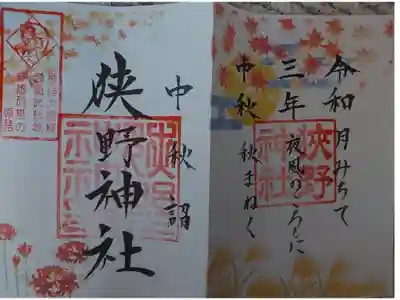 令和 月みちて
三年 夜風のころに
中秋 秋まねく
狭野
神社
中秋詣
狭野神社